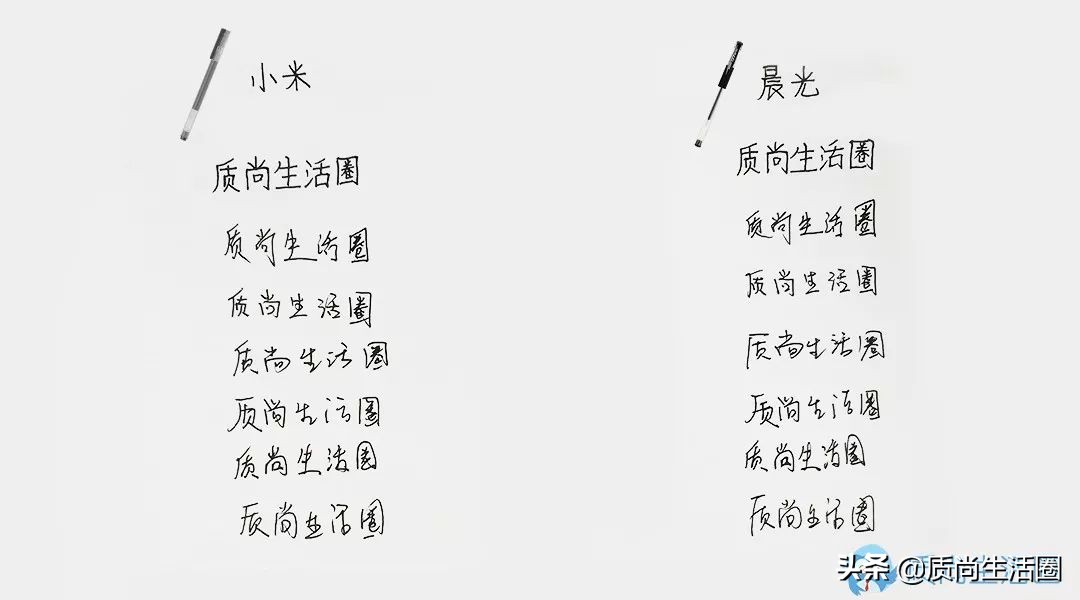 小米
质尚生活圈
质尚生活圈
质尚生活圈
质尚生活圈
质尚生活圈
质尚生活圈
质尚生活圈
晨光
质尚生活圈
质尚生活圈
质尚生活圈
质尚生活圈
质尚生活圈
质尚生活圈
质尚生活圈
质尚生活圈
头条 @质尚生活圈